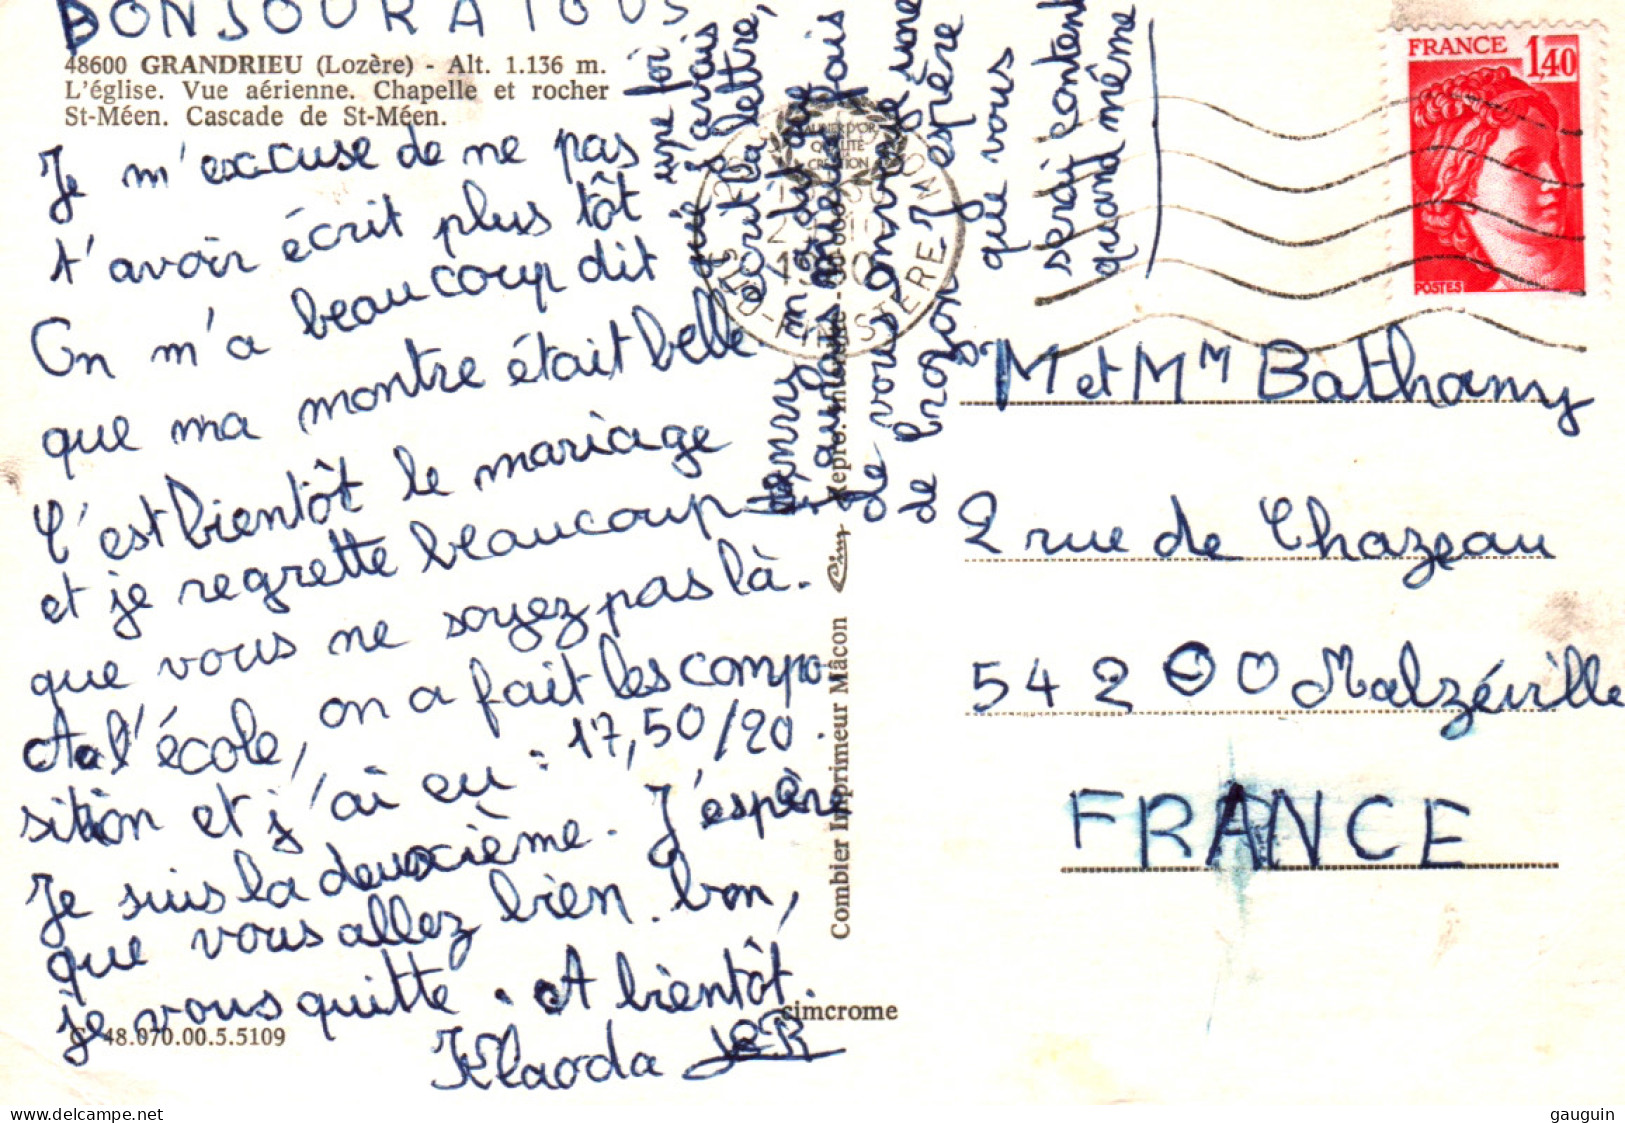 BONJOUR A TOUS
48600 GRANDRIEU (Lozère) - Alt. 1.136 m.
L'église. Vue aérienne. Chapelle et rocher
St-Méen. Cascade de St-Méen.
Je m'excuse de ne pas
t'avoir écrit plus tôt
On m'a beaucoup dit
que ma montre était belle
C'est bientôt le mariage
et je regrette beaucoup
que vous ne soyez pas là.
A l'école, on a fait les compo-
sition et j'ai eu : 17,50/20.
Je suis la deuxième. J'espère
que vous allez bien. bon,
je vous quitte. A bientôt.
Klaoda
C 48.070.00.5.5109
cimcrome
une foi
que j'avais
écrit la lettre,
de vous envoyer une
de bronzon. J'espère
que vous
serai content
quand même
Combier Imprimeur Mâcon
SUD-FINISTÈRE
FRANCE 1,40
POSTES
M et Mm Bathamy
2 rue de Chazeau
54200 Malzéville
FRANCE
gauguin